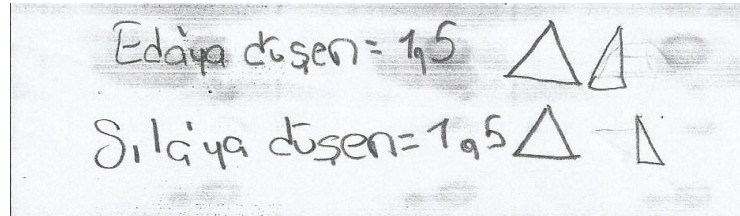 Eda'ya düşen = 1,5
Sıla'ya düşen = 1,5